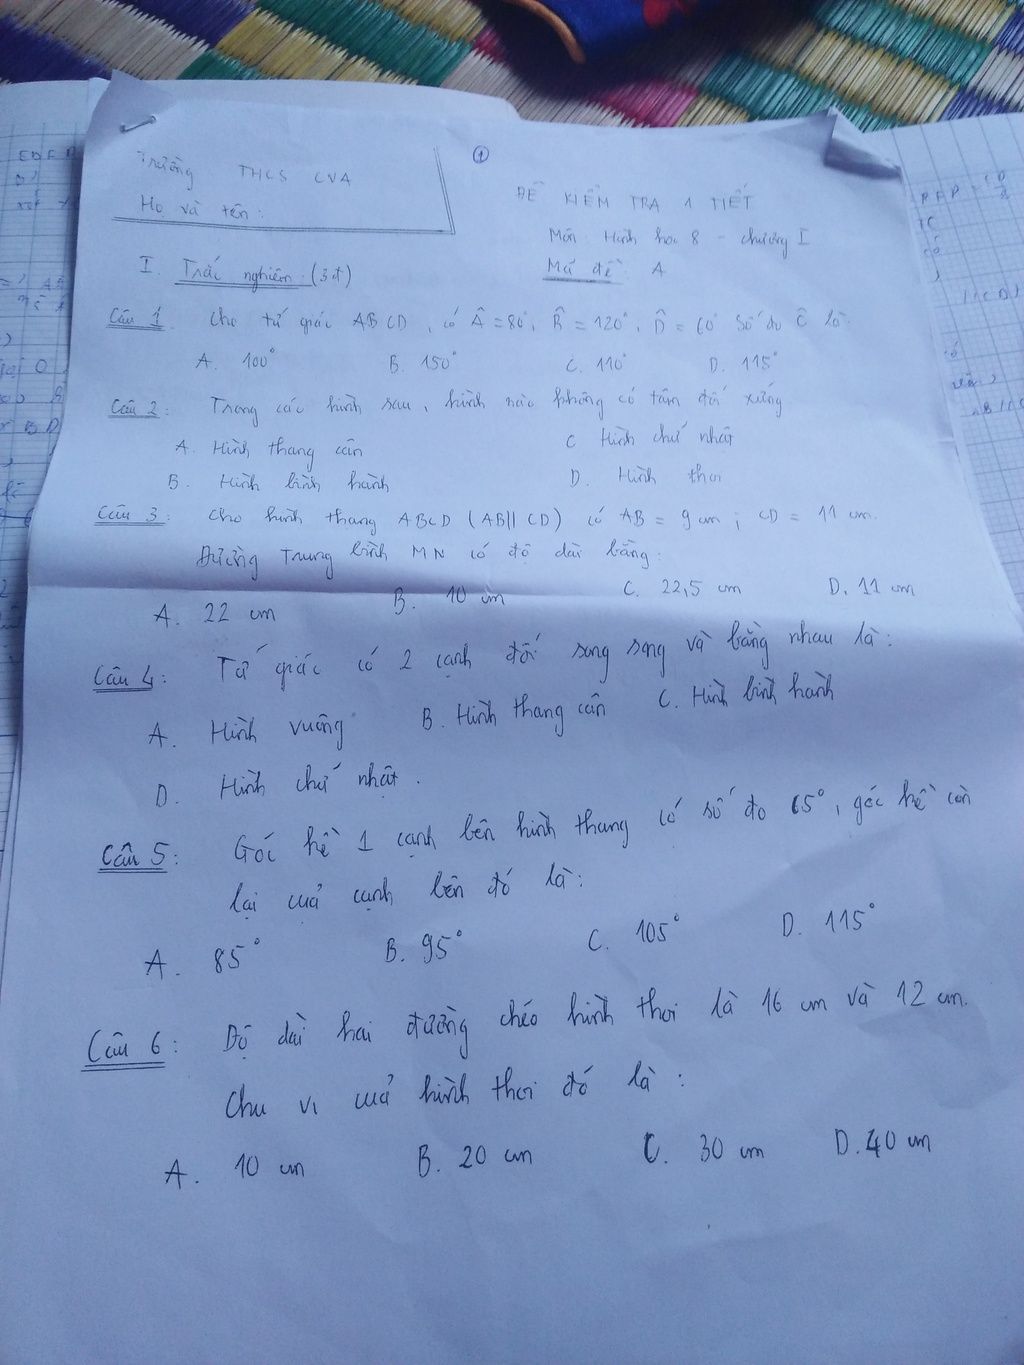 Trường THCS CVA
Họ và tên:
①
ĐỀ KIỂM TRA 1 TIẾT
Môn: Hình học 8 - chương I
Mã đề: A
I. Trắc nghiệm (3đ)
Câu 1. Cho tứ giác ABCD, có Â = 80°, B̂ = 120°, D̂ = 60° Số đo Ĉ là:
A. 100° B. 150° C. 110° D. 115°
Câu 2: Trong các hình sau, hình nào không có tâm đối xứng
A. Hình thang cân C Hình chữ nhật
B. Hình bình hành D. Hình thoi
Câu 3: Cho hình thang ABCD (AB // CD) có AB = 9 cm ; CD = 11 cm.
Đường Trung bình MN có độ dài bằng:
A. 22 cm B. 10 cm C. 22,5 cm D. 11 cm
Câu 4: Tứ giác có 2 cạnh đối song song và bằng nhau là:
A. Hình vuông B. Hình thang cân C. Hình bình hành
D. Hình chữ nhật.
Câu 5: Góc kề 1 cạnh bên hình thang có số đo 65°, góc kề còn
lại của cạnh bên đó là:
A. 85° B. 95° C. 105° D. 115°
Câu 6: Độ dài hai đường chéo hình thoi là 16 cm và 12 cm.
Chu vi của hình thoi đó là:
A. 10 cm B. 20 cm C. 30 cm D. 40 cm